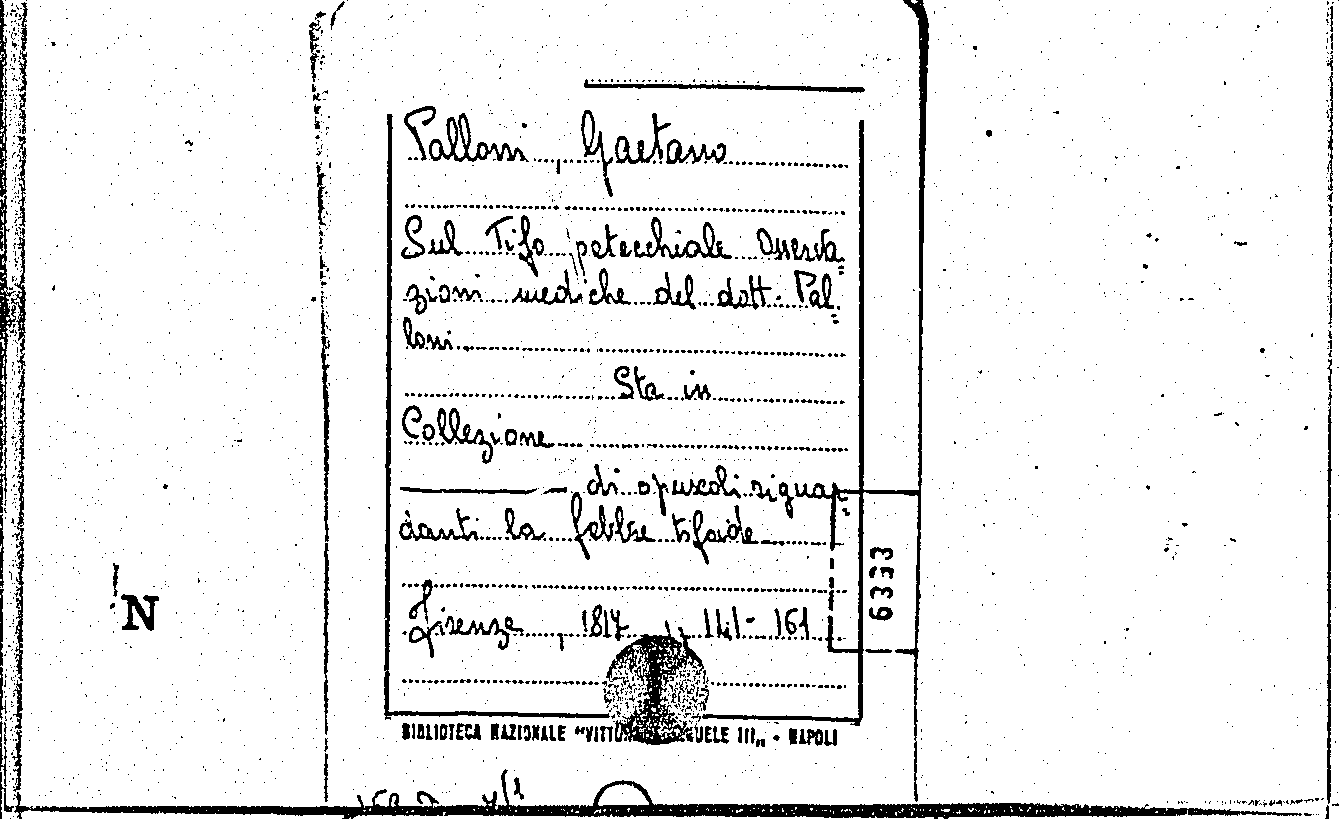 Palloni, Gaetano
Sul Tifo petecchiale Osserva=
zioni mediche del dott. Pal=
loni.
Sta in
Collezione
di opuscoli riguar=
danti la febbre tifoide
Firenze, 1817 141-161
6333
N
BIBLIOTECA NAZIONALE "VITTORIO EMANUELE III„ - NAPOLI